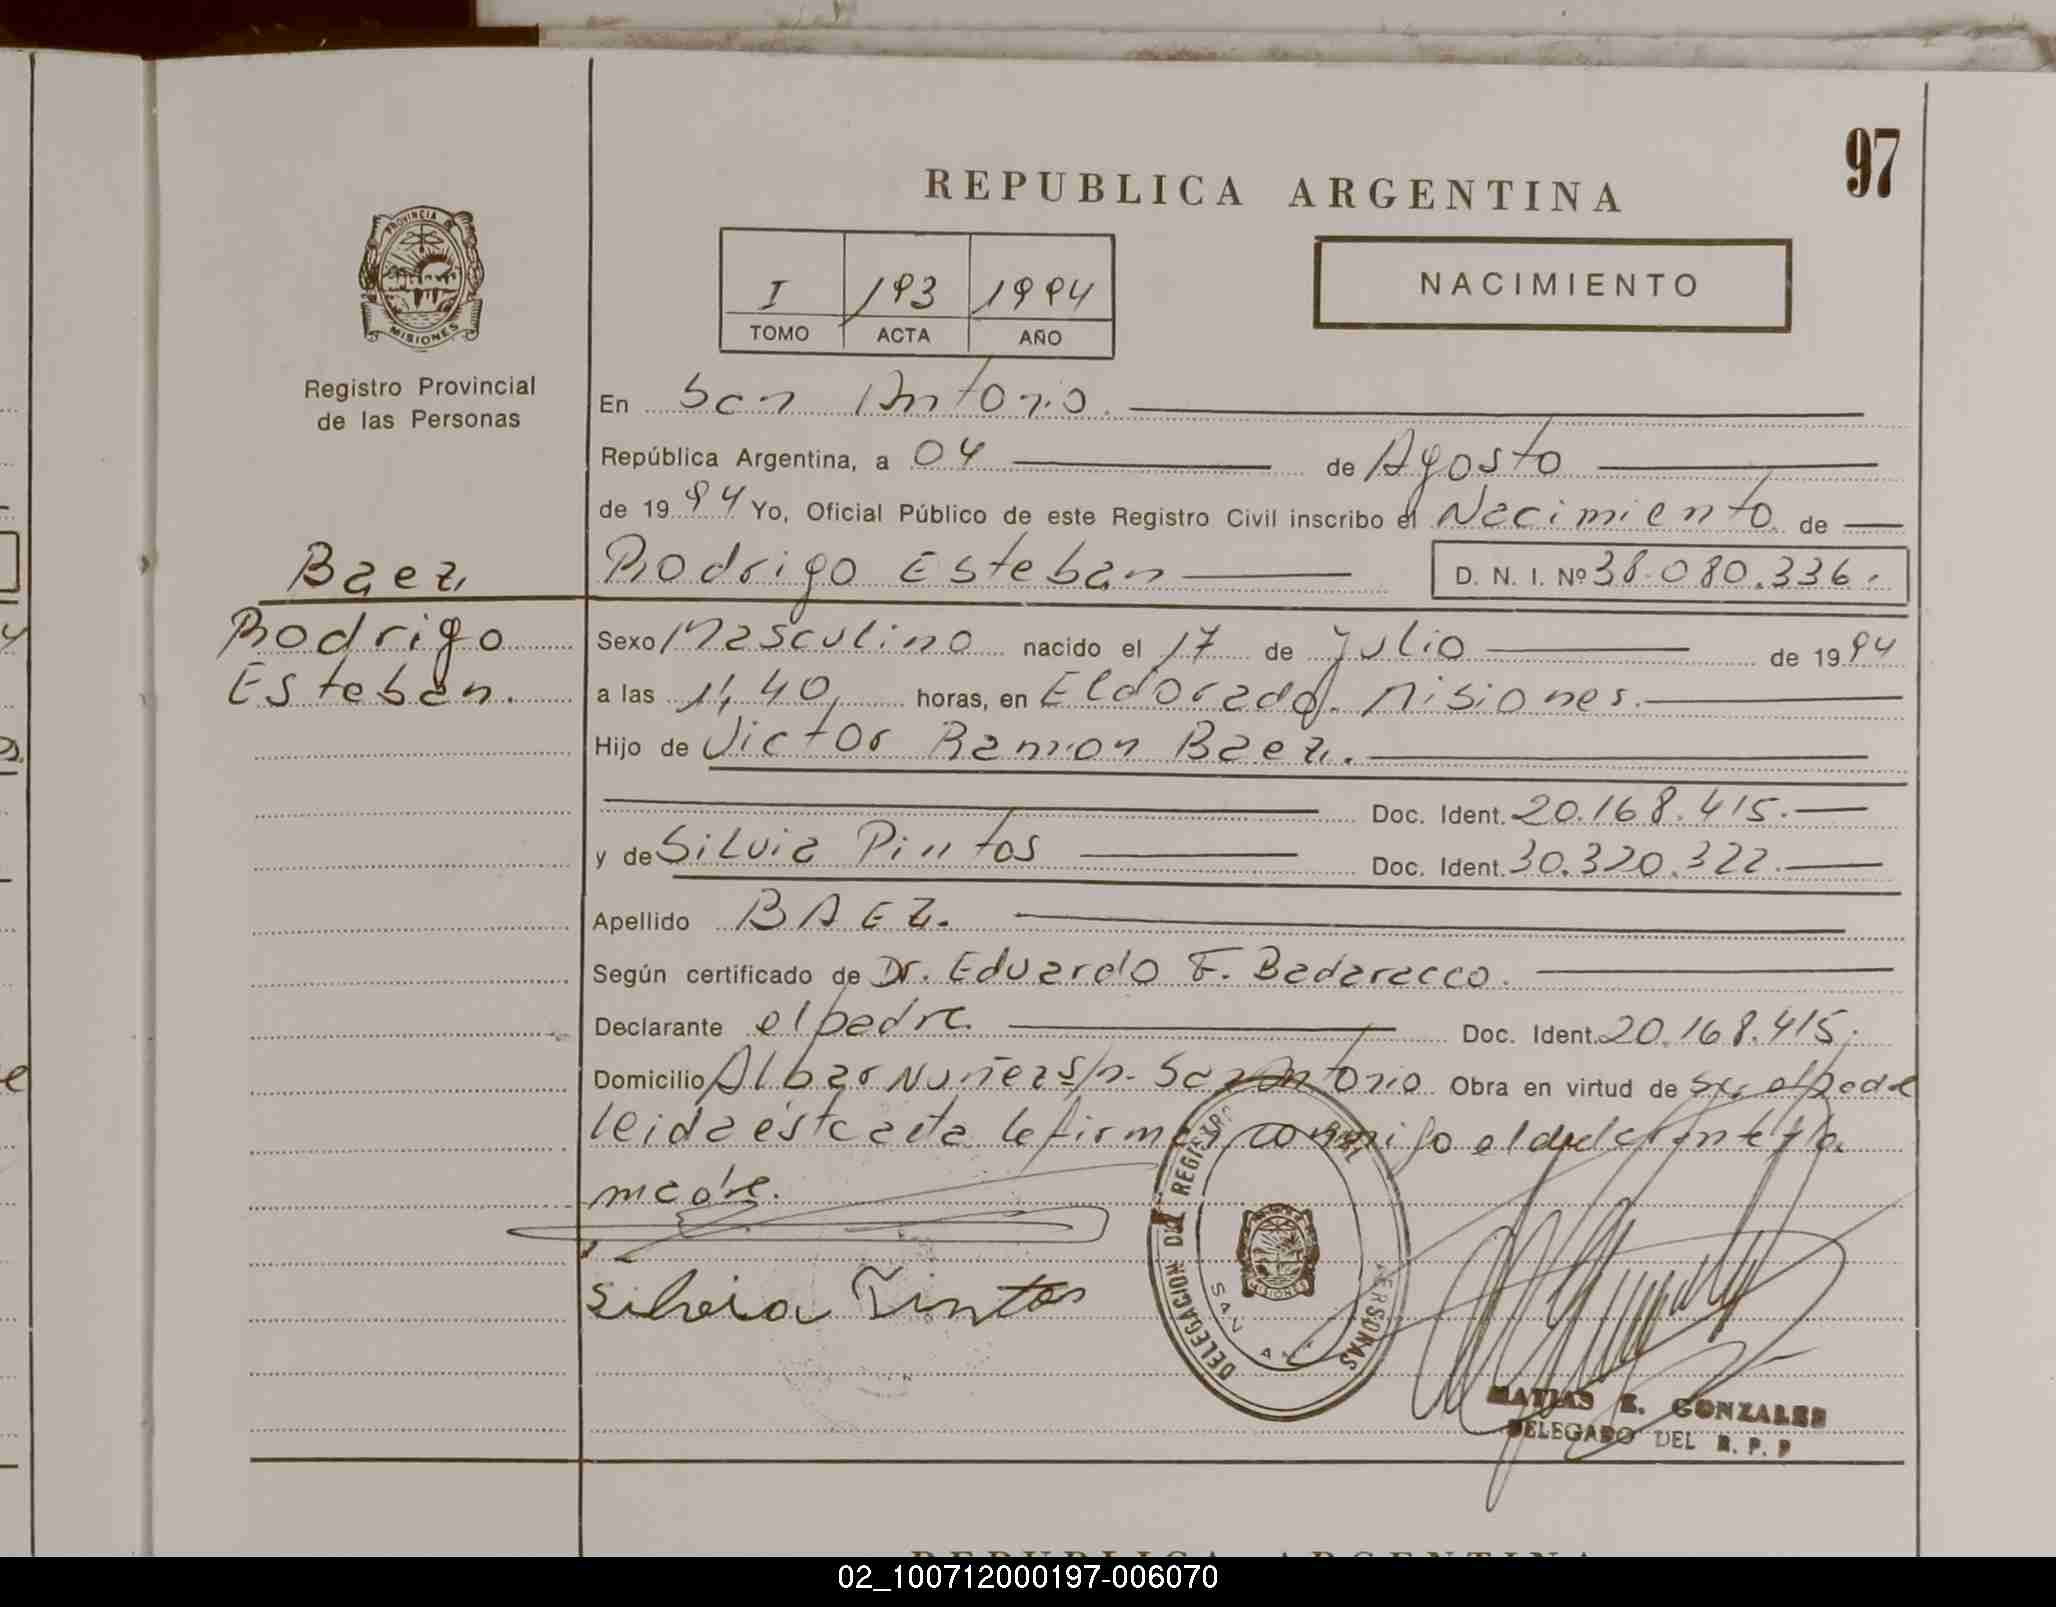 97
REPUBLICA ARGENTINA
PROVINCIA
MISIONES
Registro Provincial
de las Personas
I 193 1994
TOMO ACTA AÑO
NACIMIENTO
En San Antonio.
República Argentina, a 04 de Agosto
de 1994 Yo, Oficial Público de este Registro Civil inscribo el Nacimiento de
Baez Rodrigo Esteban D. N. I. Nº 38.080.336.
Rodrigo Sexo Masculino nacido el 17 de Julio de 1994
Esteban. a las 11,40 horas, en Eldorado. Misiones.
Hijo de Victor Ramon Baez.
Doc. Ident. 20.168.415.
y de Silvia Pintos Doc. Ident. 30.320.322.
Apellido BAEZ.
Según certificado de Dr. Eduardo F. Badaracco.
Declarante el padre Doc. Ident. 20.168.415.
Domicilio Albar Nuñez s/n. San Antonio Obra en virtud de
leida ésta acta la firman conmigo el declarante y la
madre.
Silvia Pintos
DELEGACION DEL REGISTRO PERSONAS
SAN ANT
MISIONES
MATIAS E. GONZALES
DELEGADO DEL R. P. P
REPUBLICA ARGENTINA
02_100712000197-006070